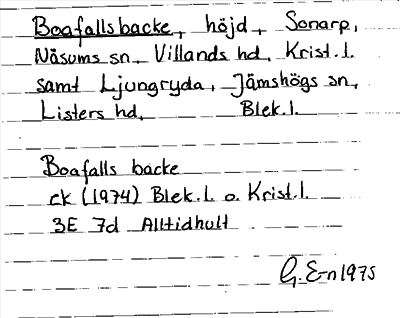 Boafallsbacke, höjd, Sonarp,
Näsums sn, Villands hd, Krist.l.
samt Ljungryda, Jämshögs sn,
Listers hd, Blek.l.
Boafalls backe
ek (1974) Blek.l. o. Krist.l.
3E 7d Alltidhult
G. E-n 1975